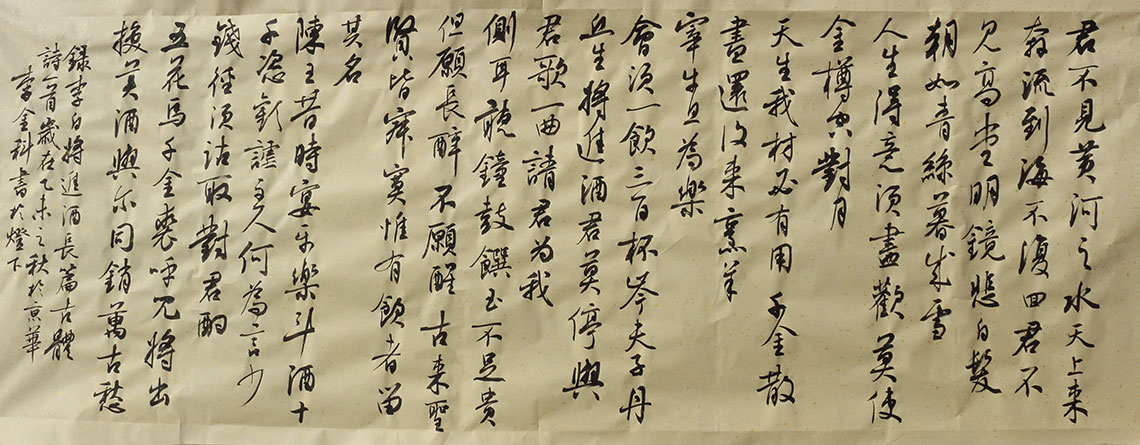 君不見黃河之水天上来
奔流到海不復回君不
見高堂明鏡悲白髮
朝如青絲暮成雪
人生得意須盡歡莫使
金樽空對月
天生我材必有用千金散
盡還復来烹羊
宰牛且為樂
會須一飲三百杯岑夫子丹
丘生將進酒君莫停與
君歌一曲請君为我
側耳聽鐘鼓饌玉不足貴
但願長醉不願醒古来聖
賢皆寂寞惟有飲者留
其名
陳王昔時宴平樂斗酒十
千恣歡謔主人何為言少
錢徑須沽取對君酌
五花馬千金裘呼兒將出
換美酒與尔同銷萬古愁
錄李白將進酒長篇古體
詩一首歲在乙未之秋於京華
李金科書於燈下